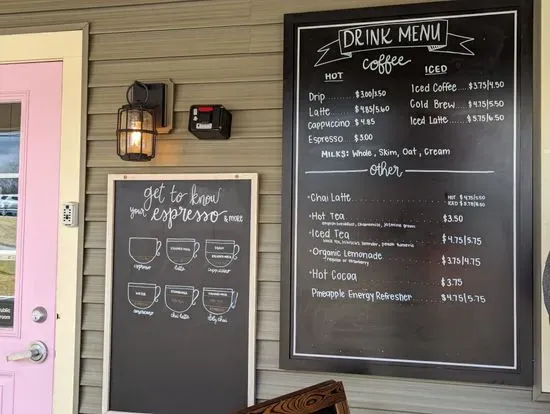 DRINK MENU
coffee
HOT
Drip ..... $3.00/3.50
Latte ..... $4.85/5.60
Cappuccino .. $4.85
Espresso ... $3.00
ICED
Iced Coffee ..... $3.75/4.50
Cold Brew ..... $4.75/5.50
Iced Latte ..... $5.75/6.50
MILKS: Whole, Skim, Oat, Cream
other
•Chai Latte
HOT
ICED
•Hot Tea ..... $3.50
•Iced Tea ..... $4.75/5.75
•Organic Lemonade ..... $3.75/4.75
regular or strawberry
•Hot Cocoa ..... $3.75
Pineapple Energy Refresher ..... $4.75/5.75
get to know
your espresso & more
espresso
latte
cappuccino
americano
chai latte
dirty chai